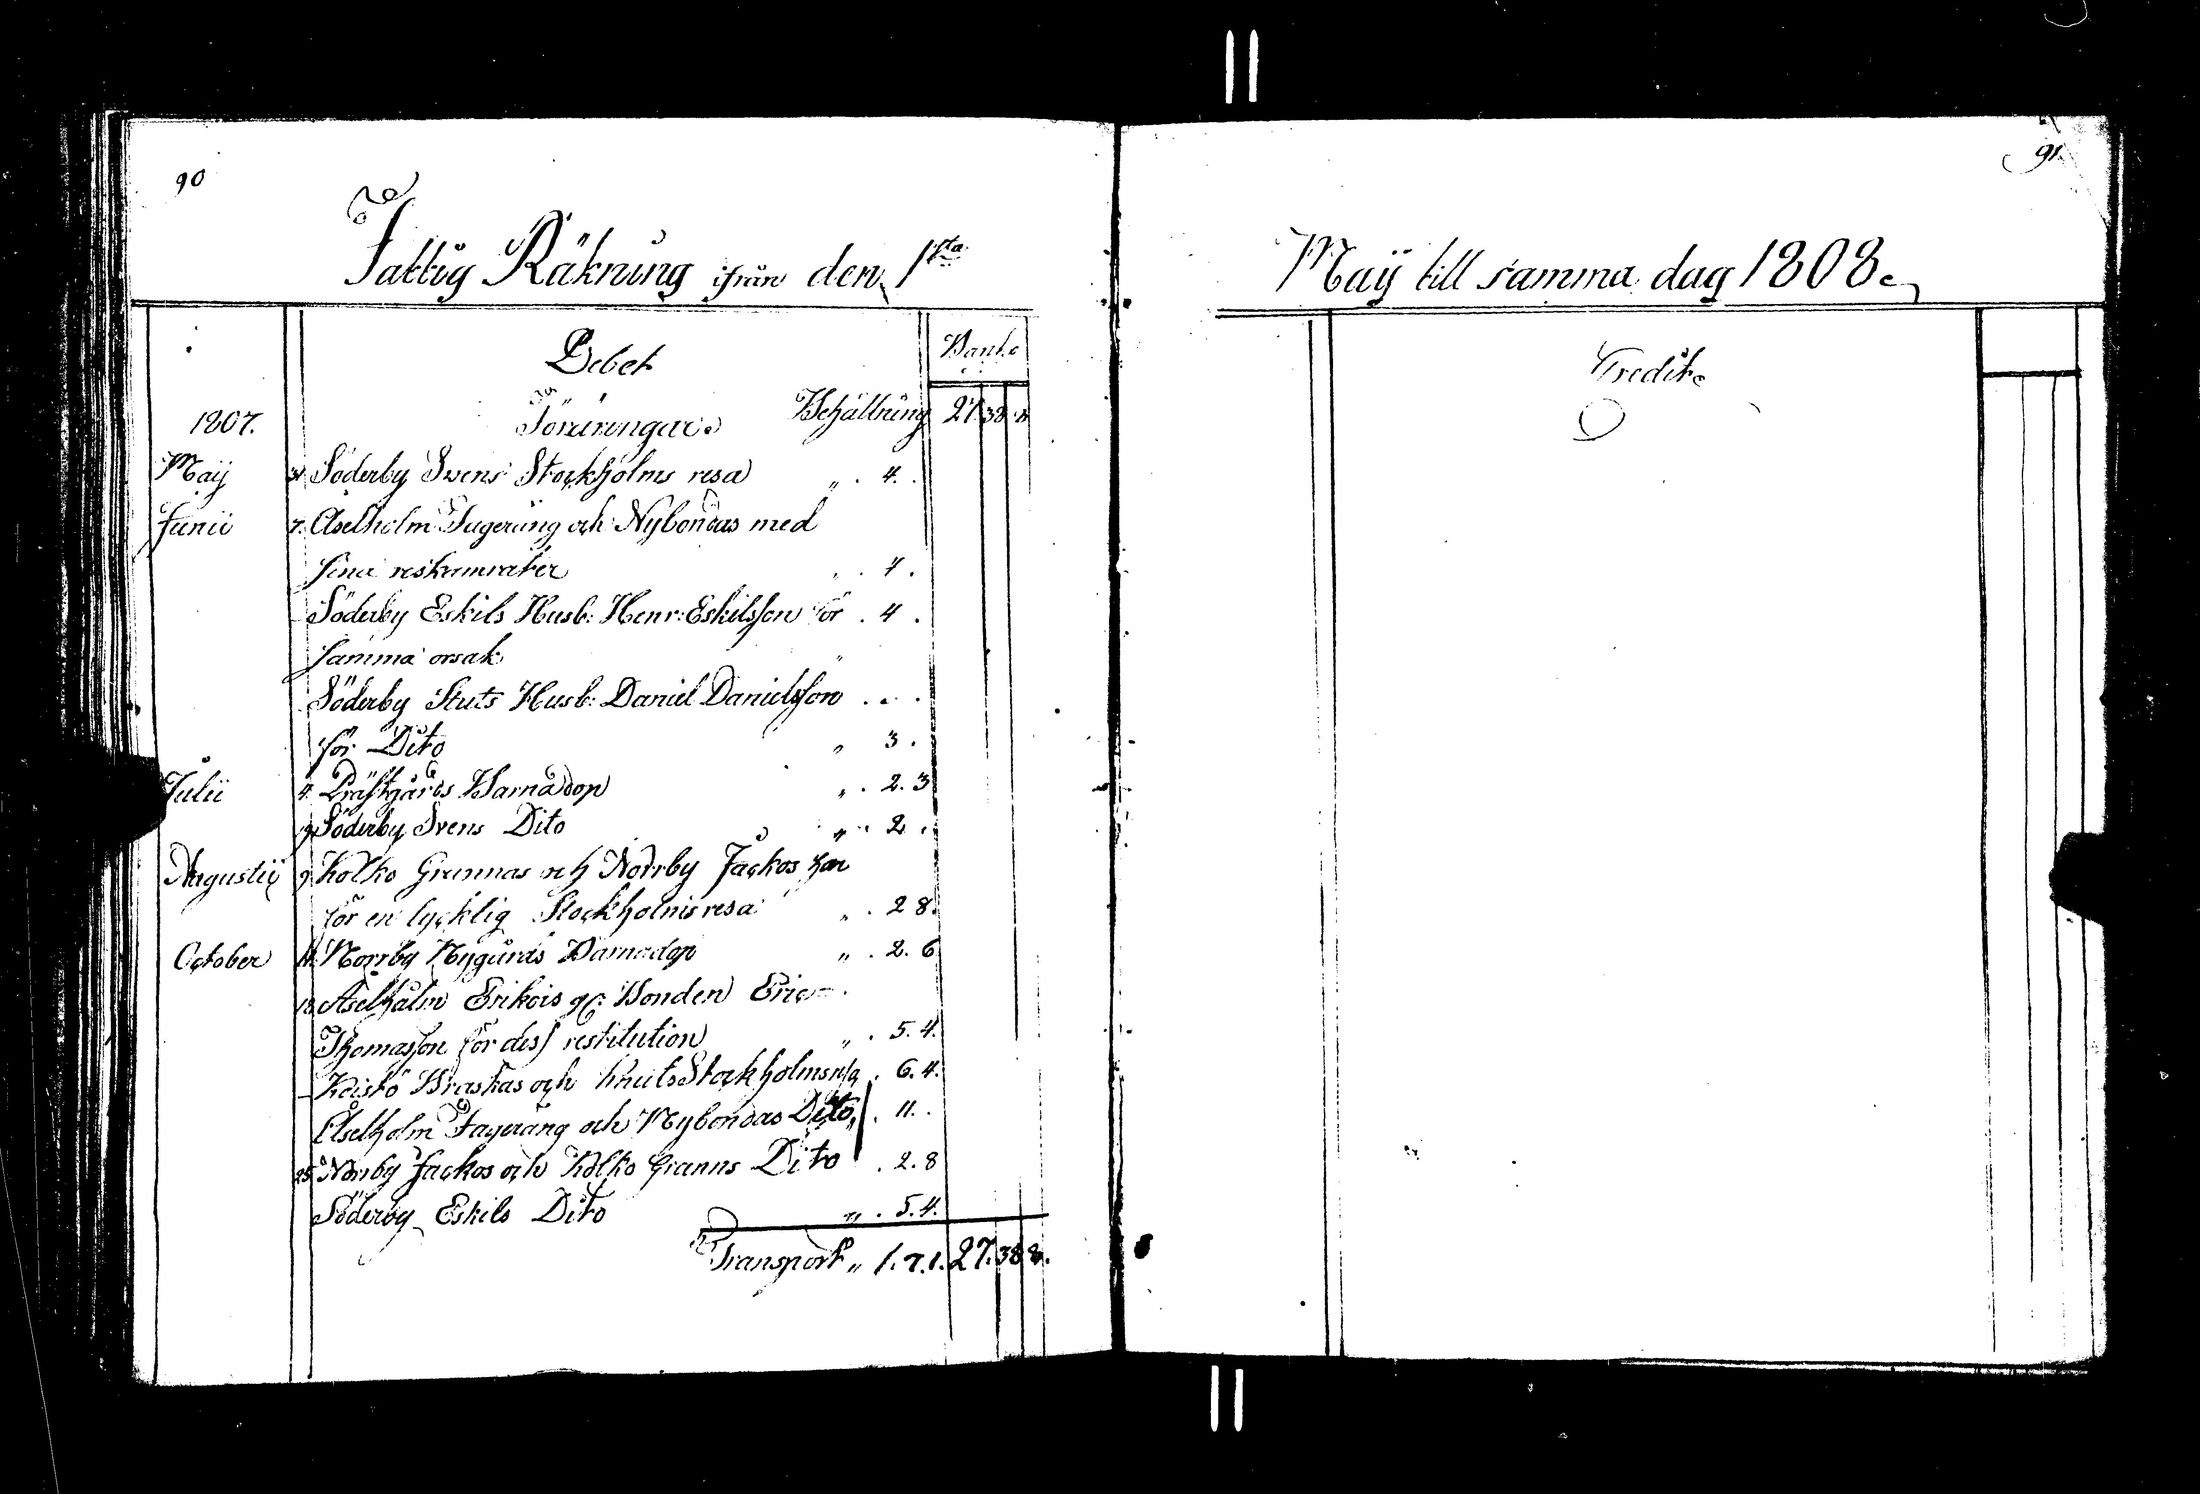 90
91.
Fattig Räkning ifrån den 1sta
Maij till samma dag 1808.
Debet
Banko
Credit.
1807.
Föräringar. Behållning 27. 38. 8
Maij 31 Söderby Svens Stockholms resa „ . 4. .
Junii 7. Åselholm Fageräng och Nybondas med
sina reskamrater „ . 7 .
Söderby Eskils Husb: Henr: Eskilsson för . 4 .
samma orsak
Söderby Stuts Husb: Daniel Danielsson . . .
för Dito „ 3 .
Julii 4. Prästgårds Barnadop „ . 2. 3
19. Söderby Svens Dito „ . 2 .
Augustii 9. Kolko Grannas och Norrby Jackos
för en lycklig Stockholmsresa „ . 2 8.
October 11. Norrby Nygårds Barnadop „ . 2. 6
18. Åselholm Erikois gc: Bonden Eric
Thomasson för dess restitution „ . 5. 4.
Kristö Braskas och Knuts Stockholmsresa . 6. 4.
Åselholm Fageräng och Nybondas Dito „ . 11. .
25. Norrby Jackos och Kolko Granns Dito . 2. 8
Söderby Eskils Dito „ . 5. 4.
Transport „ 1. 7. 1. 27. 38 8.